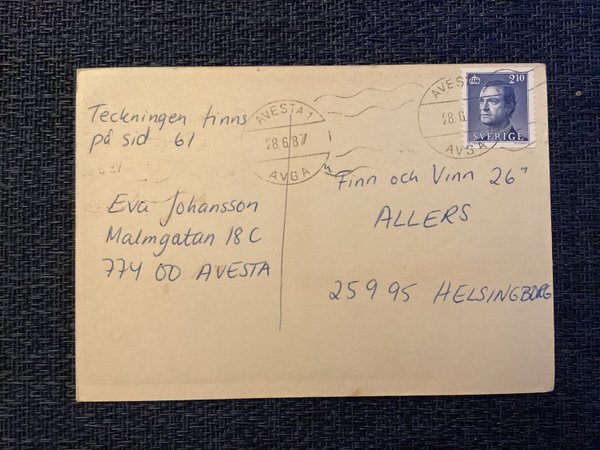 Teckningen finns
på sid 61
Eva Johansson
Malmgatan 18 C
774 00 AVESTA
AVESTA 1
28.6.87
AVGA
AVESTA
28.6.
AVGA
2 10
SVERIGE
"Finn och Vinn 26"
ALLERS
259 95 HELSINGBORG